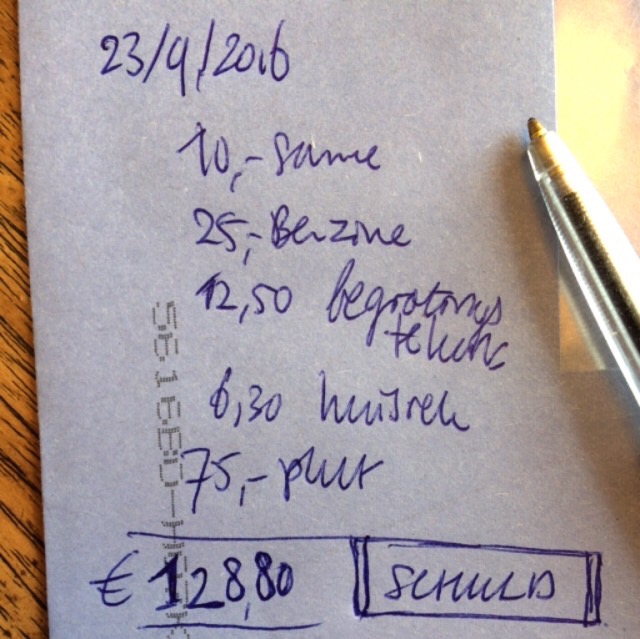 23/9/2016
10,- Sanne
25,- Benzine
12,50 begrotings
tekens
6,30 huisrek
75,- plut
€ 128,80 SCHULD